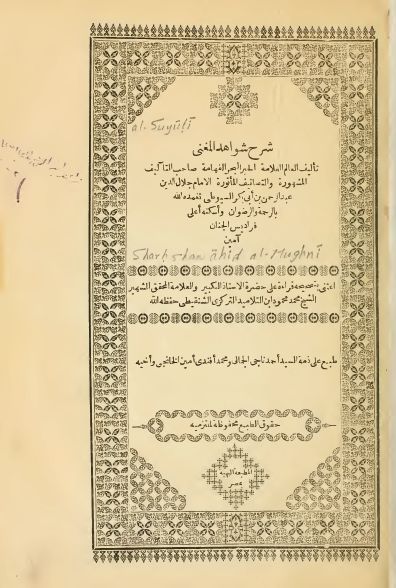 al-Suyūṭī
شرح شواهد المغنى
تأليف العالم العلامة الحبر البحر الفهامة صاحب التآليف
المشهورة والتصانيف المأثورة الامام جلال الدين
عبد الرحمن بن أبى بكر السيوطى تغمده الله
بالرحمة والرضوان وأسكنه أعلى
فراديس الجنان
آمين
Sharḥ shawāhid al-Mughnī
اعتنى بتصحيحه قراءة على حضرة الاستاذ الكبير والعلامة المحقق الشهير
الشيخ محمد محمود ابن التلاميد التركزى الشنقيطى حفظه الله
طبع على ذمة السيد أحمد ناجى الجمالى ومحمد أفندى أمين الخانجى وأخيه
حقوق الطبع محفوظة لملتزميه
المطبعة البهية
بمصر